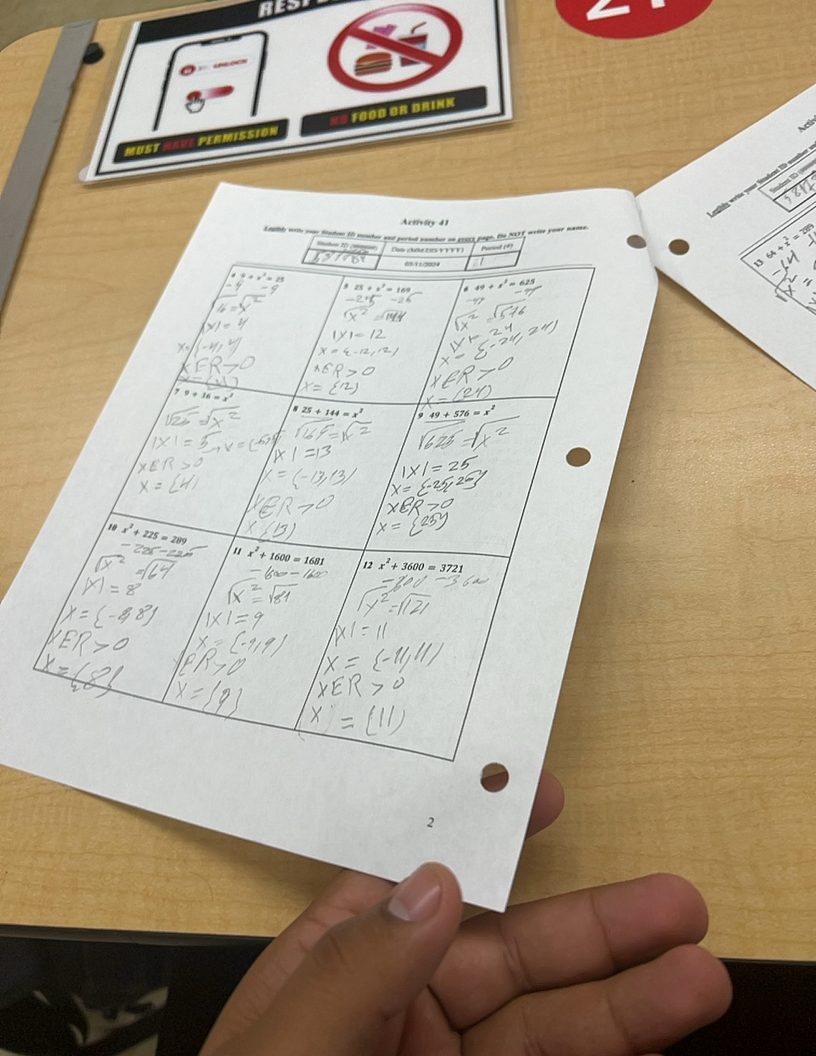 UNLOCK
MUST HAVE PERMISSION
NO FOOD OR DRINK
21
Activity 41
Legibly write your Student ID number and period number on every page. Do NOT write your name.
Student ID
Date (MM/DD/YYYY)
Period (#)
03/11/2024
4 9 + x² = 25
-9 -9
√16 = √x²
|X| = 4
X = {-4, 4}
XER > 0
5 25 + x² = 169
-25 -25
√x² = √144
|X| = 12
X = {-12, 12}
XER > 0
X = {12}
6 49 + x² = 625
-49 -49
√x² = √576
|X| = 24
X = {-24, 24}
XER > 0
X = {24}
7 9 + 16 = x²
√25 = √x²
|X| = 5
XER > 0
X = {4}
8 25 + 144 = x²
√169 = √x²
|X| = 13
X = {-13, 13}
XER > 0
X {13}
9 49 + 576 = x²
√625 = √x²
|X| = 25
X = {-25, 25}
XER > 0
X = {25}
10 x² + 225 = 289
-225 -225
√x² = √64
|X| = 8
X = {-8, 8}
XER > 0
X = {8}
11 x² + 1600 = 1681
-1600 -1600
√x² = √81
|X| = 9
X = {-9, 9}
XER > 0
X = {9}
12 x² + 3600 = 3721
√x² = √121
|X| = 11
X = {-11, 11}
XER > 0
X = {11}
2
13 64 + x² = 289